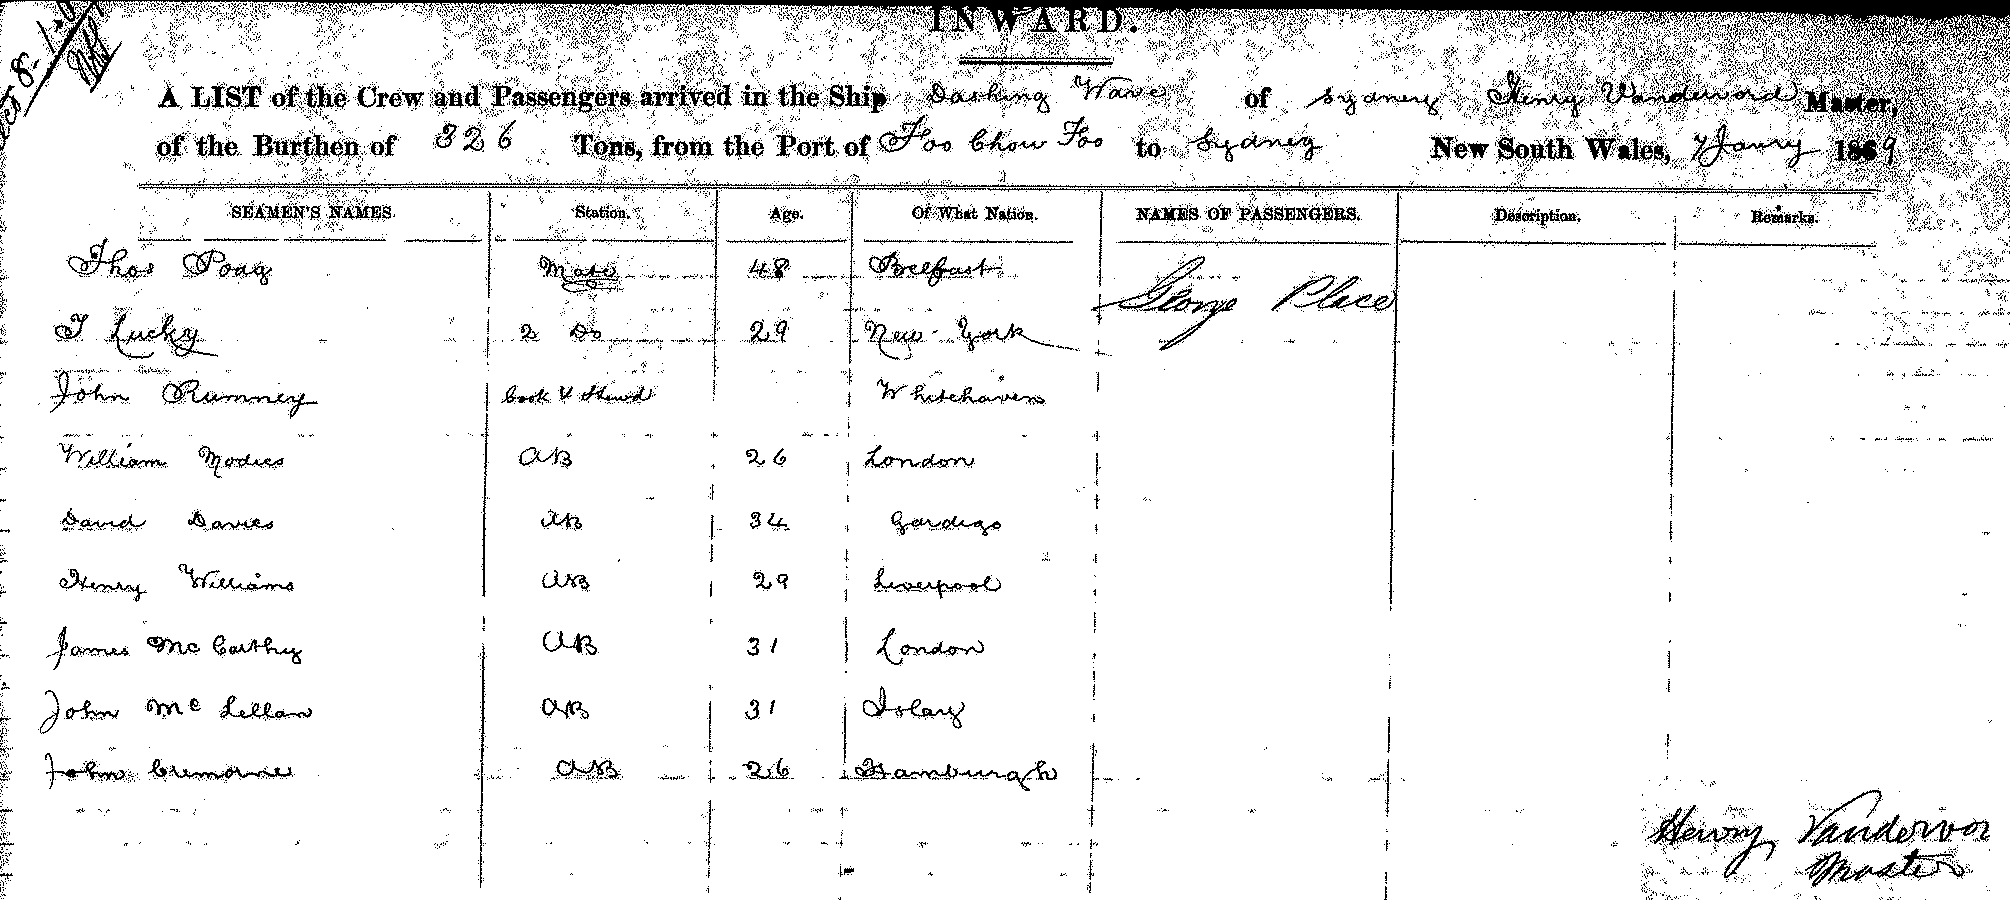 INWARD.
A LIST of the Crew and Passengers arrived in the Ship Dashing Wave of Sydney Henry Vanderword Master,
of the Burthen of 326 Tons, from the Port of Foo Chow Foo to Sydney New South Wales, 7 Janry 1869
SEAMEN'S NAMES. Station. Age. Of What Nation. NAMES OF PASSENGERS. Description. Remarks.
Thos Poag Mate 48 Belfast
George Place
T Lucky 2 Do 29 New York
John Rumney Cook & Stewd Whitehaven
William Modies AB 26 London
David Davies AB 34 Cardigo
Henry Williams AB 29 Liverpool
James McCarthy AB 31 London
John McLellan AB 31 Islay
John AB 26 Hamburgh
Henry Vandervor
Master